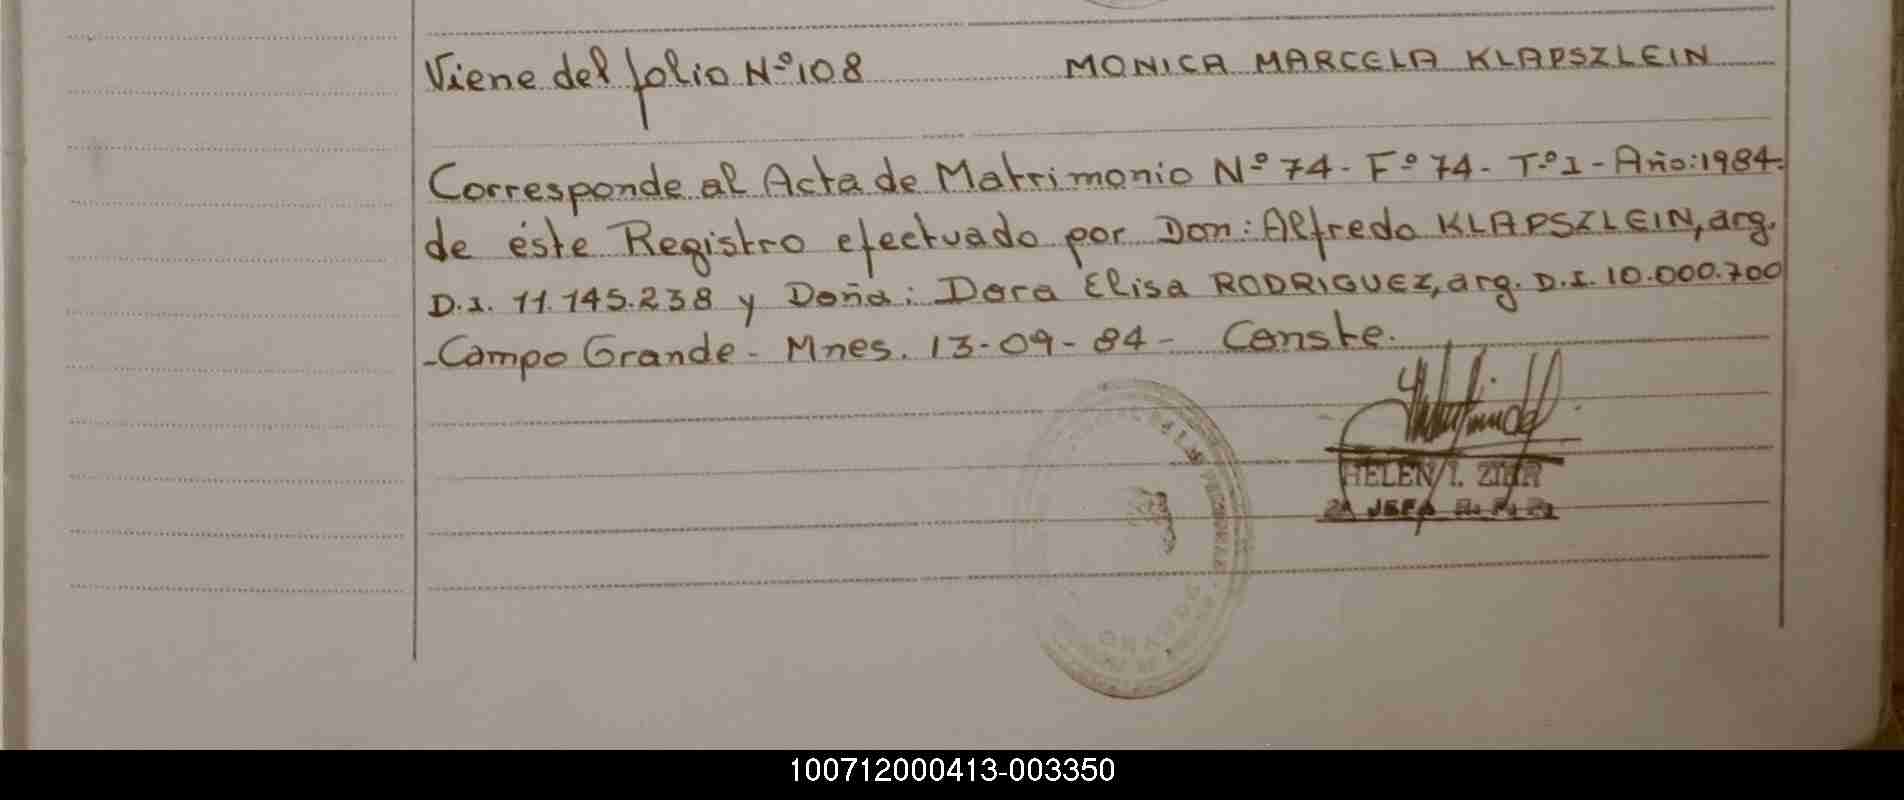 Viene del folio Nº 108 MONICA MARCELA KLAPSZLEIN
Corresponde al Acta de Matrimonio Nº 74 - Fº 74 - Tº 1 - Año: 1984.
de éste Registro efectuado por Don: Alfredo KLAPSZLEIN, arg.
D.I. 11.145.238 y Doña: Dora Elisa RODRIGUEZ, arg. D.I. 10.000.700
-Campo Grande - Mnes. 13-09-84 - Conste.
HELEN I.
100712000413-003350